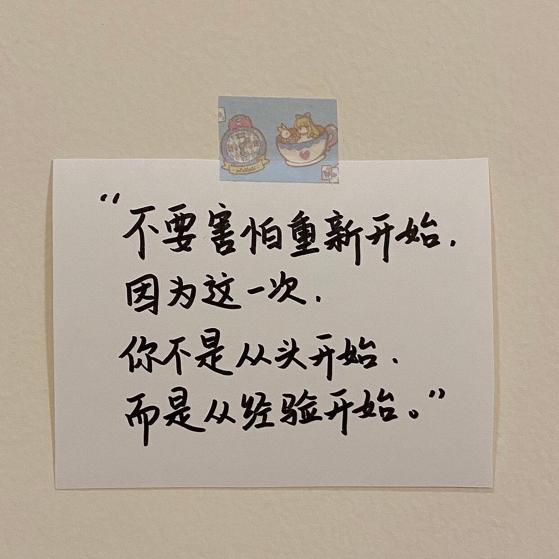 “不要害怕重新开始.
因为这一次.
你不是从头开始.
而是从经验开始。”